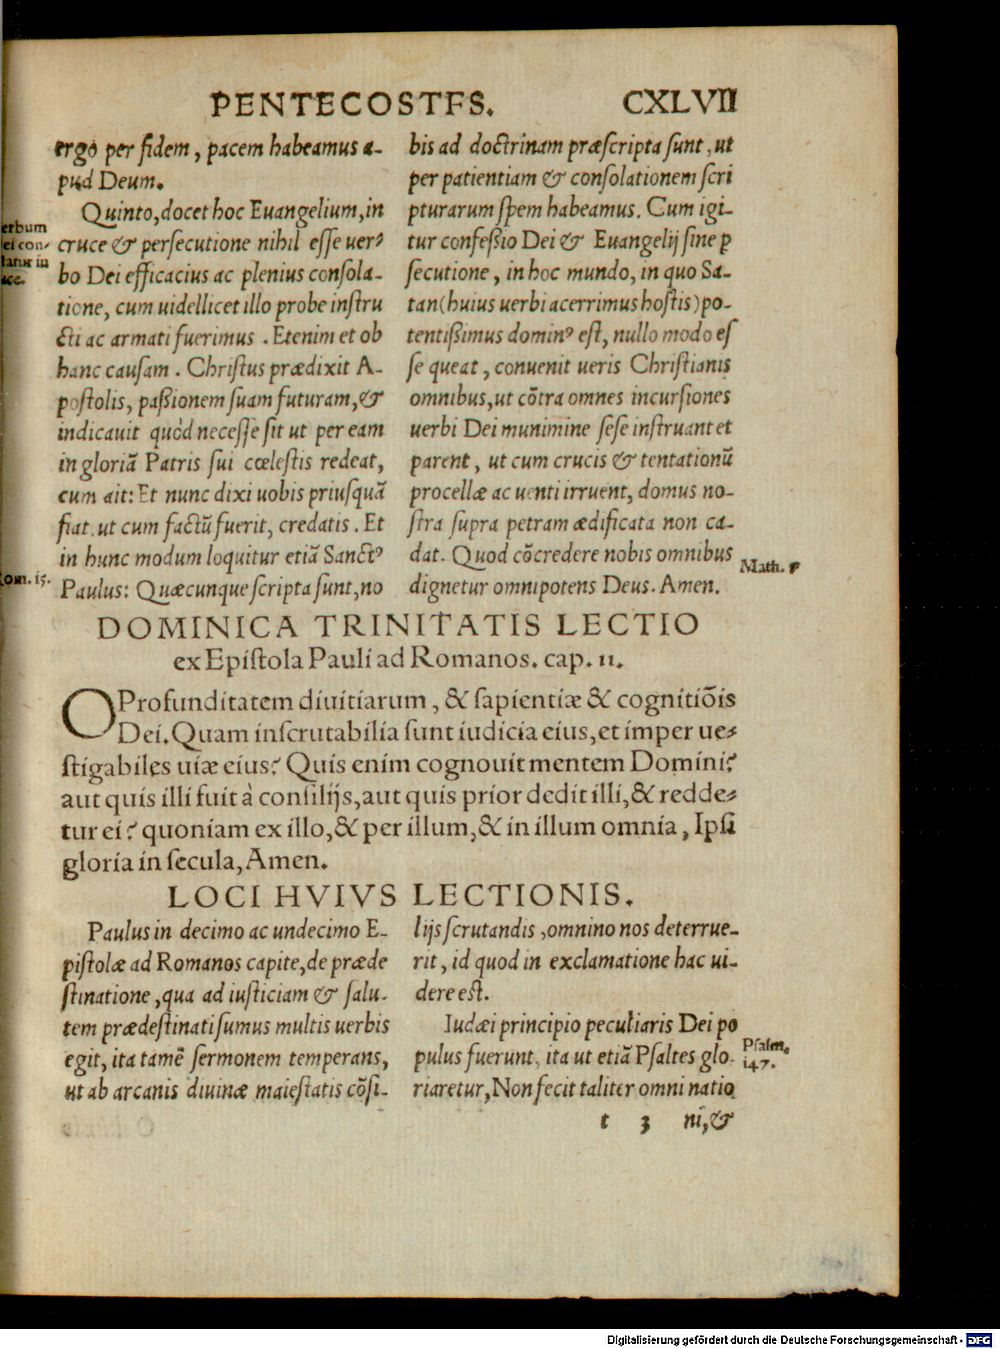 PENTECOSTES. CXLVII
ergo per fidem, pacem habeamus a-
pud Deum.
Quinto, docet hoc Euangelium, in
cruce & persecutione nihil esse uer-
bo Dei efficacius ac plenius consola-
tione, cum uidellicet illo probe instru
cti ac armati fuerimus. Etenim et ob
hanc causam. Christus prædixit A-
postolis, passionem suam futuram, &
indicauit quòd necesse sit ut per eam
in gloriã Patris sui cœlestis redeat,
cum ait: Et nunc dixi uobis priusquã
fiat. ut cum factũ fuerit, credatis. Et
in hunc modum loquitur etiã Sanctꝰ
Paulus: Quæcunque scripta sunt, no
erbum
ei con-
latur in
uce.
om. 15.
bis ad doctrinam præscripta sunt, ut
per patientiam & consolationem scri
pturarum spem habeamus. Cum igi-
tur confessio Dei & Euangelij sine p
secutione, in hoc mundo, in quo Sa-
tan (huius uerbi acerrimus hostis) po-
tentissimus dominꝰ est, nullo modo es
se queat, conuenit ueris Christianis
omnibus, ut cõtra omnes incursiones
uerbi Dei munimine sese instruant et
parent, ut cum crucis & tentationũ
procellæ ac uenti irruent, domus no-
stra supra petram ædificata non ca-
dat. Quod cõcredere nobis omnibus
dignetur omnipotens Deus. Amen.
Math.
DOMINICA TRINITATIS LECTIO
ex Epistola Pauli ad Romanos. cap. 11.
O Profunditatem diuitiarum, & sapientiæ & cognitiõis
Dei. Quam inscrutabilia sunt iudicia eius, et imper ue-
stigabiles uiæ eius? Quis enim cognouit mentem Domini?
aut quis illi fuit à consilijs, aut quis prior dedit illi, & redde-
tur ei? quoniam ex illo, & per illum, & in illum omnia, Ipsi
gloria in secula, Amen.
LOCI HVIVS LECTIONIS.
Paulus in decimo ac undecimo E-
pistolæ ad Romanos capite, de præde
stinatione, qua ad iusticiam & salu-
tem prædestinati sumus multis uerbis
egit, ita tamẽ sermonem temperans,
ut ab arcanis diuinæ maiestatis cõsi-
lijs scrutandis, omnino nos deterrue-
rit, id quod in exclamatione hac ui-
dere est.
Iudæi principio peculiaris Dei po
pulus fuerunt. ita ut etiã Psaltes glo-
riaretur, Non fecit taliter omni natio
Psalm.
147.
t 3 ni, &
Digitalisierung gefördert durch die Deutsche Forschungsgemeinschaft - DFG